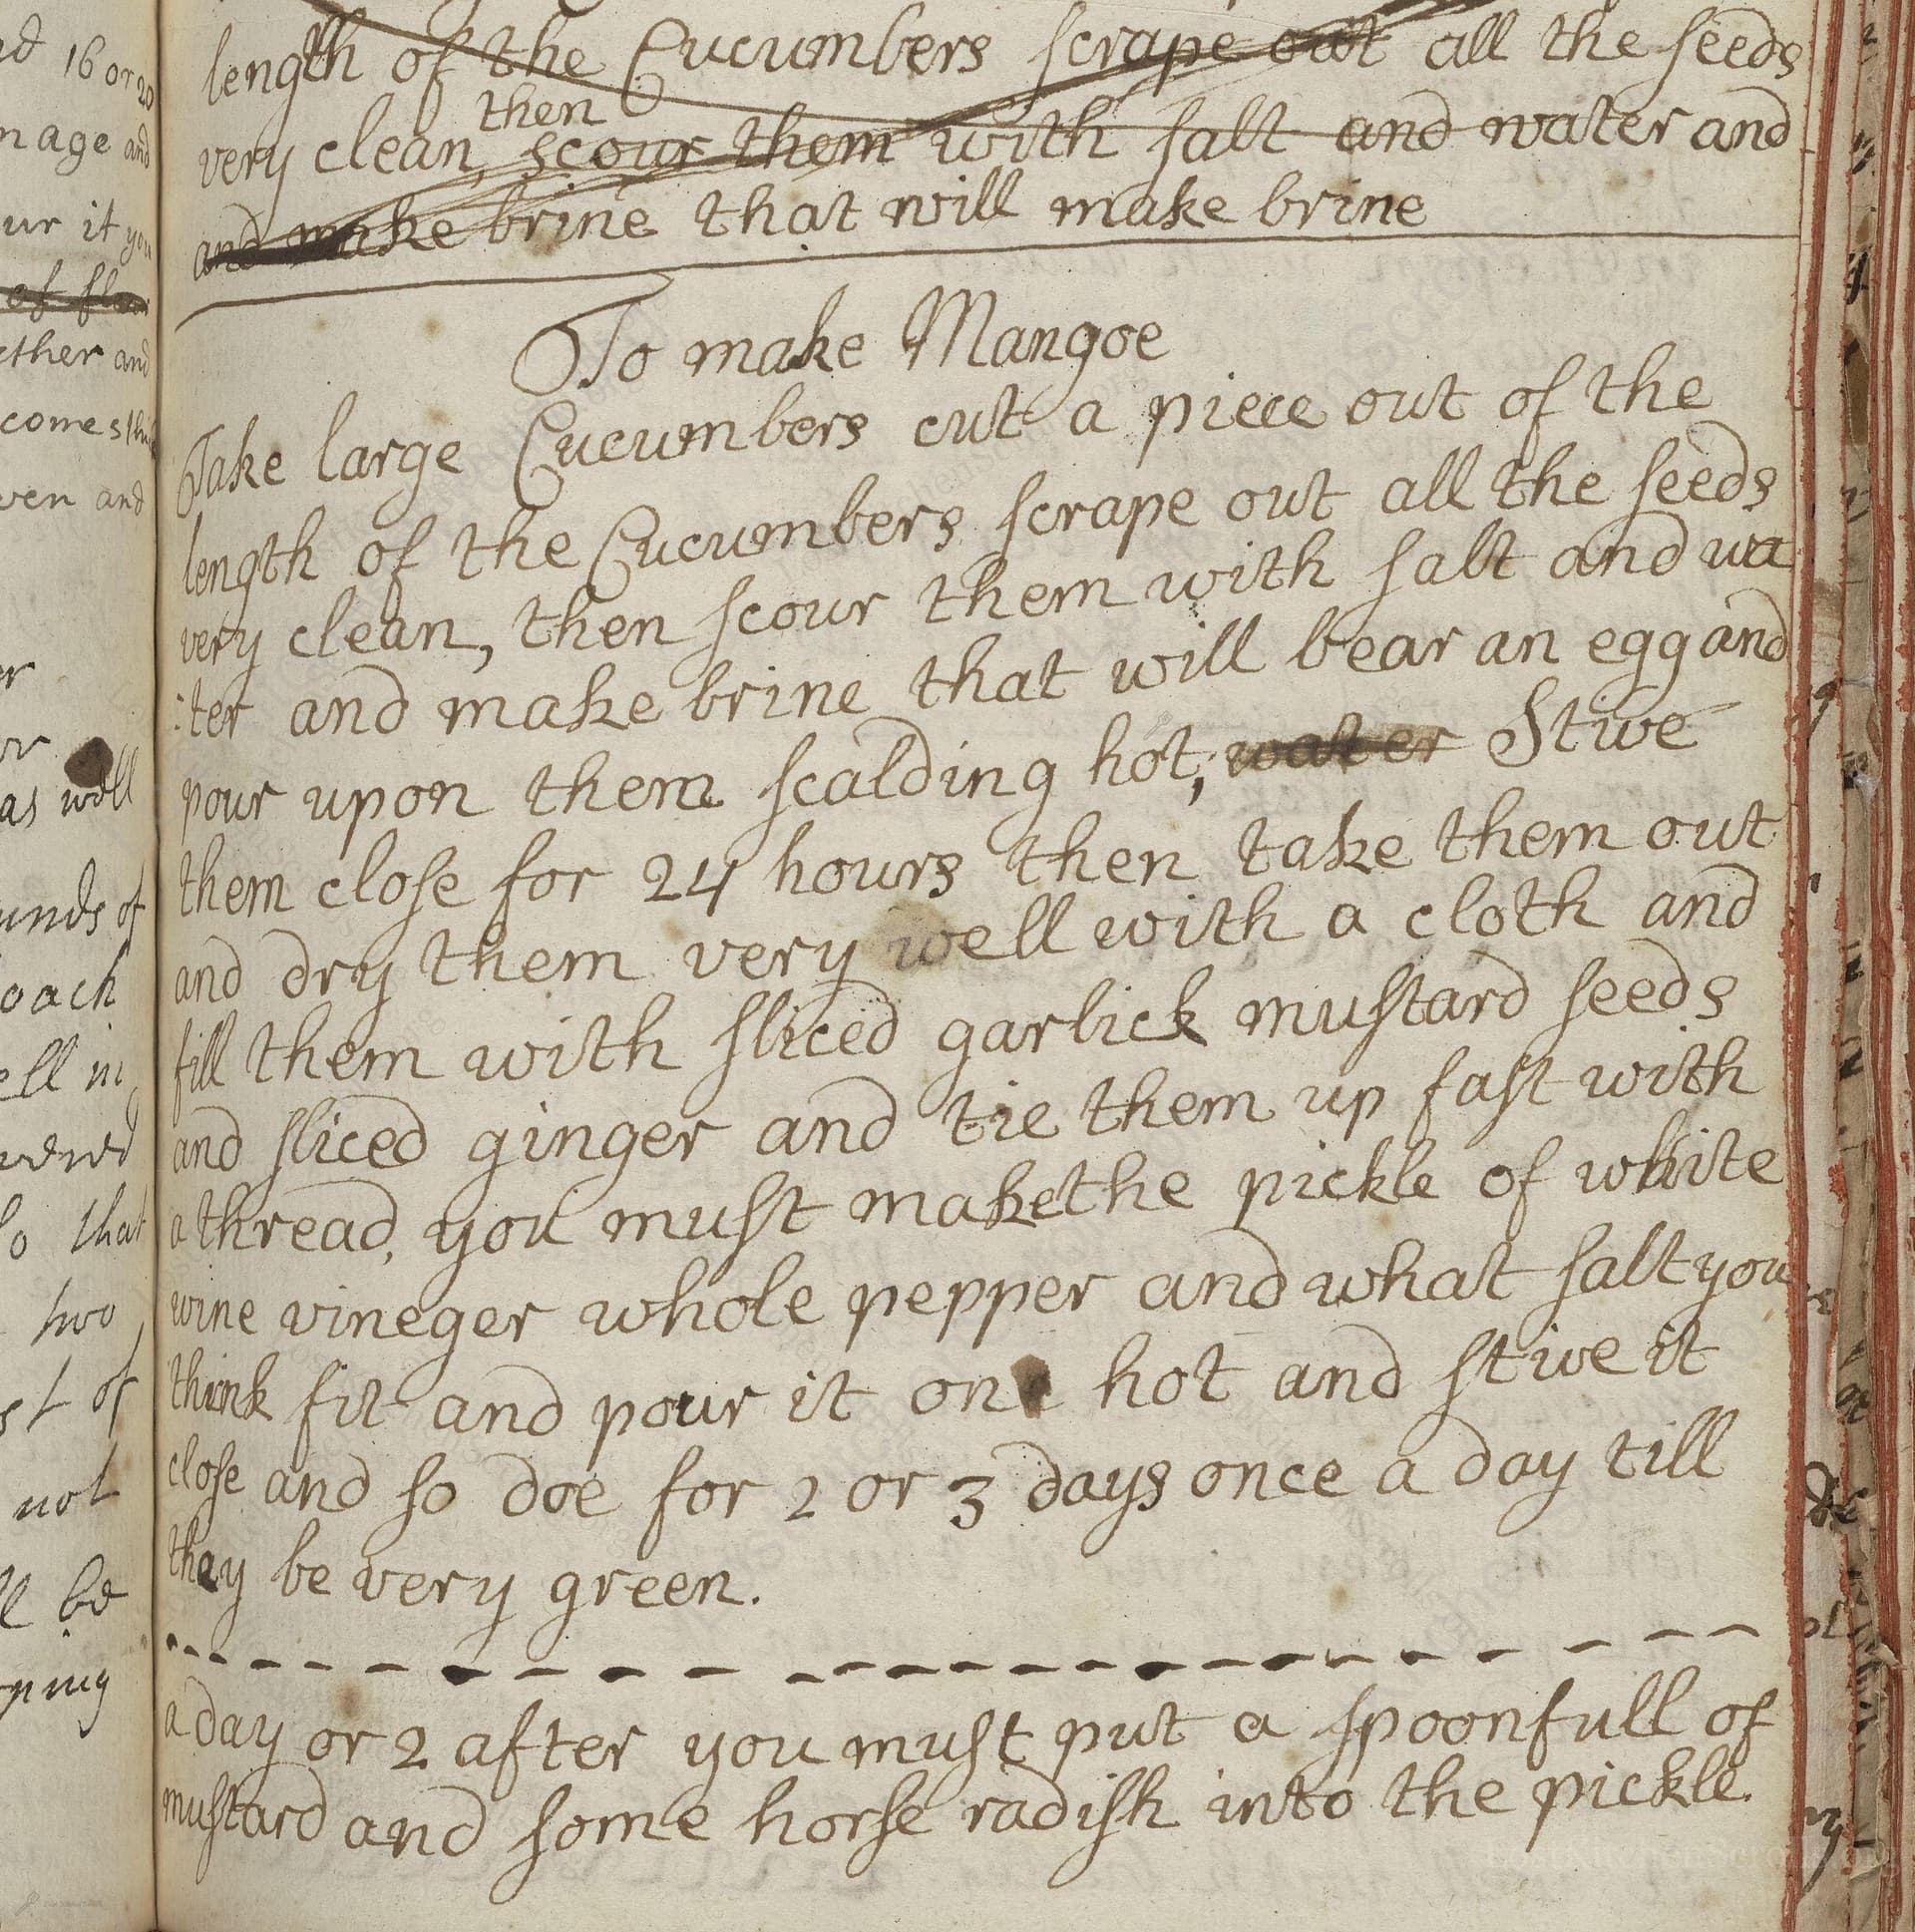 length of the Cucumbers scrape out all the seeds
then
very clean, scour them with salt and water and
and make brine that will make brine
To make Mangoe
Take large Cucumbers cut a piece out of the
length of the Cucumbers scrape out all the seeds
very clean, then scour them with salt and wa
:ter and make brine that will bear an egg and
pour upon them scalding hot, water Stive
them close for 24 hours then take them out
and dry them very well with a cloth and
fill them with sliced garlick mustard seeds
and sliced ginger and tie them up fast with
a thread, you must make the pickle of white
wine vineger whole pepper and what salt you
think fit and pour it on hot and stive it
close and so doe for 2 or 3 days once a day till
they be very green.
a day or 2 after you must put a spoonfull of
mustard and some horse radish into the pickle.
nd 16 or 20
mage and
ur it you
ether and
comes
ven and
er
or
as well
unds of
oach
ell in
so that
two
st of
not
ll be
ping